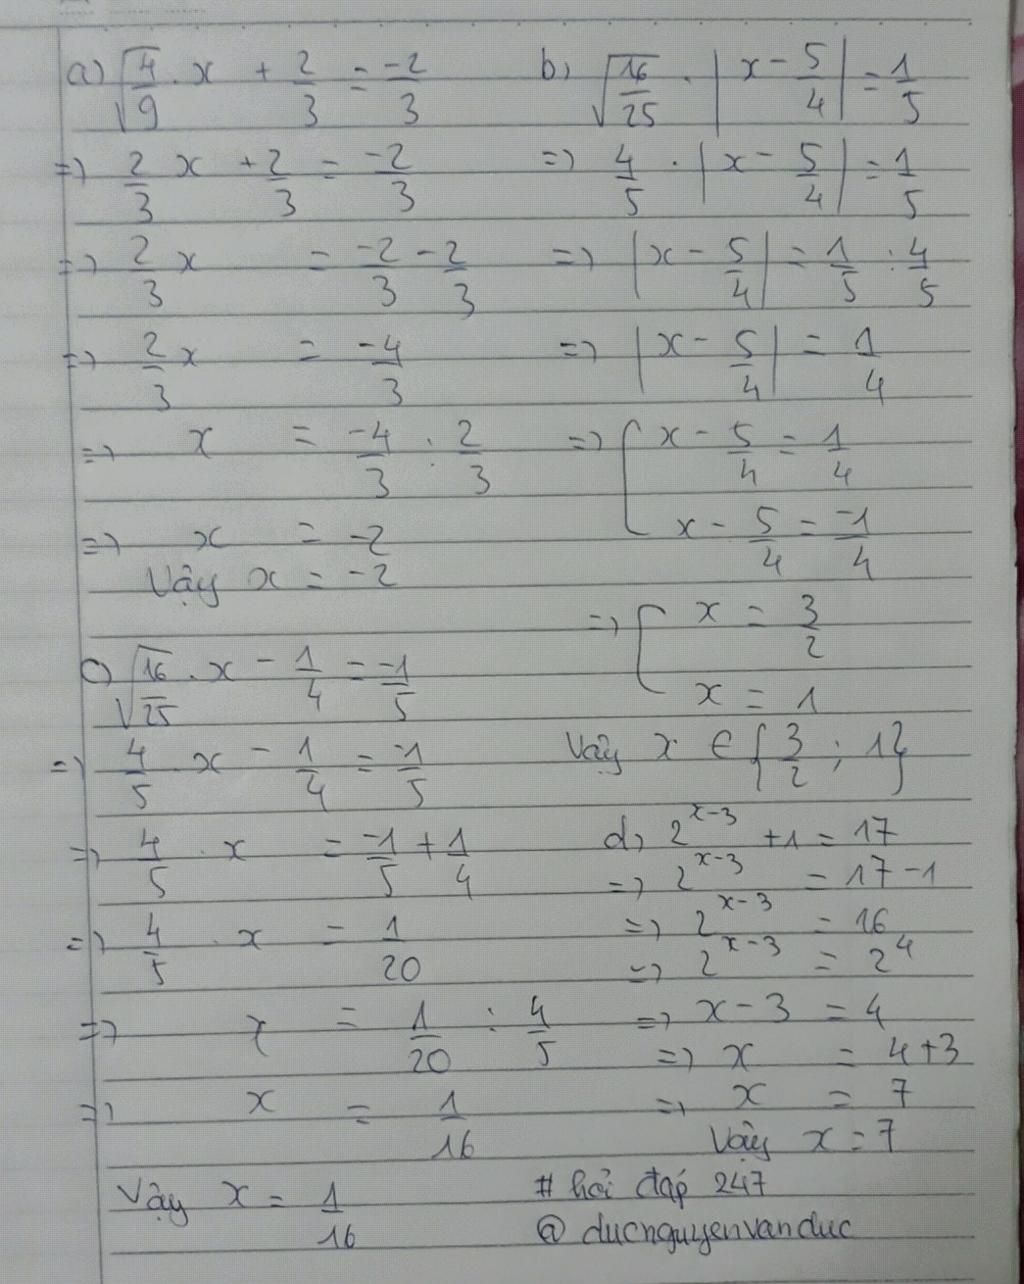 a) √(4/9) . x + 2/3 = -2/3
=> 2/3 x + 2/3 = -2/3
=> 2/3 x = -2/3 - 2/3
=> 2/3 x = -4/3
=> x = -4/3 : 2/3
=> x = -2
Vậy x = -2
b) √(16/25) . |x - 5/4| = 1/5
=> 4/5 . |x - 5/4| = 1/5
=> |x - 5/4| = 1/5 : 4/5
=> |x - 5/4| = 1/4
=> [ x - 5/4 = 1/4
x - 5/4 = -1/4
=> [ x = 3/2
x = 1
Vậy x ∈ {3/2 ; 1}
c) √(16/25) . x - 1/4 = -1/5
=> 4/5 . x - 1/4 = -1/5
=> 4/5 . x = -1/5 + 1/4
=> 4/5 . x = 1/20
=> x = 1/20 : 4/5
=> x = 1/16
Vậy x = 1/16
d) 2^(x-3) + 1 = 17
=> 2^(x-3) = 17 - 1
=> 2^(x-3) = 16
=> 2^(x-3) = 2^4
=> x - 3 = 4
=> x = 4 + 3
=> x = 7
Vậy x = 7
# hỏi đáp 247
@ ducnguyenvanduc